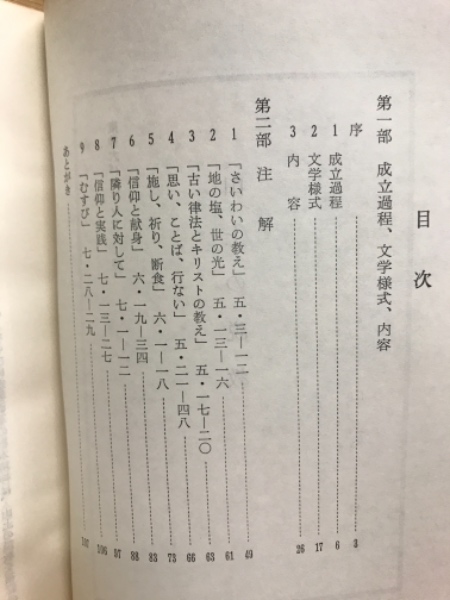 目次
第一部 成立過程、文学様式、内容
序 3
1 成立過程 6
2 文学様式 17
3 内容 26
第二部 注解
1 「さいわいの教え」 五・三―一二 49
2 「地の塩、世の光」 五・一三―一六 61
3 「古い律法とキリストの教え」 五・一七―二〇 63
4 「思い、ことば、行ない」 五・二一―四八 66
5 「施し、祈り、断食」 六・一―一八 73
6 「信仰と献身」 六・一九―三四 83
7 「隣り人に対して」 七・一―一二 88
8 「信仰と実践」 七・一三―二七 97
9 「むすび」 七・二八―二九 106
あとがき